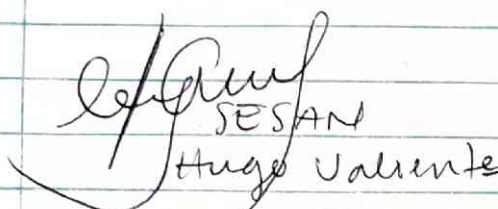 SESAN
Hugo Valiente